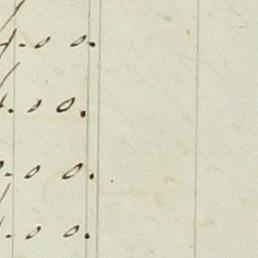 . 0 0.
. 0 0.
. 0 0.
. 0 0.